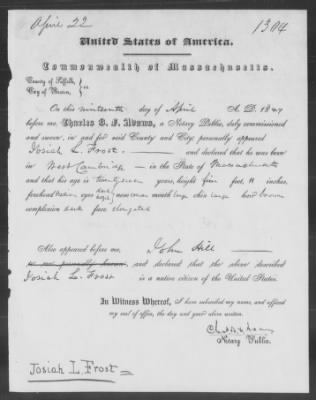 April 22
1304
United States of America.
Commonwealth of Massachusetts.
County of Suffolk,
City of Boston, } ss
On this nineteenth day of April A. D. 1847
before me, Charles B. F. Adams, a Notary Public, duly commissioned
and sworn, in and for said County and City, personally appeared
Josiah L. Frost — and declared that he was born
in West Cambridge — in the State of Massachusetts
and that his age is years, height five feet, inches,
forehead eyes dark nose mouth large chin large hair brown
complexion dark face elongated
Also appeared before me, John Hill
to me personally known, and declared that the above described
Josiah L. Frost is a native citizen of the United States.
In Witness Whereof, I have subscribed my name, and affixed
my seal of office, the day and year above written.
Notary Public.
Josiah L. Frost